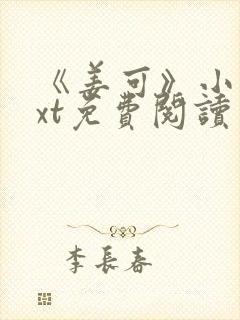 《姜可》小
xt免費閱讀
李長春